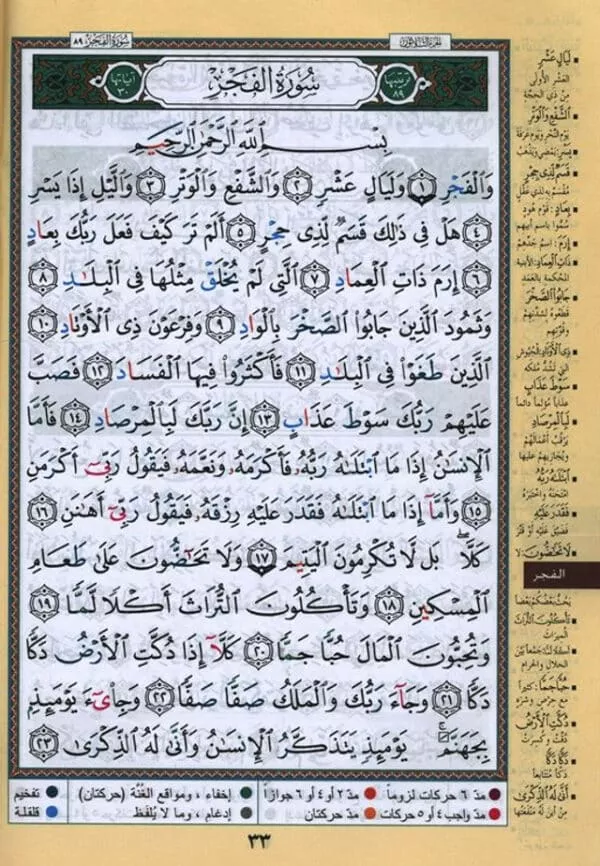 سورة الفجر ٨٩
الجزء الثلاثون
ترتيبها ٨٩
سُورَةُ الفَجْرِ
آياتها ٣٠
بِسْمِ ٱللَّهِ ٱلرَّحْمَٰنِ ٱلرَّحِيمِ
وَٱلْفَجْرِ ١ وَلَيَالٍ عَشْرٍ ٢ وَٱلشَّفْعِ وَٱلْوَتْرِ ٣ وَٱلَّيْلِ إِذَا يَسْرِ
٤ هَلْ فِى ذَٰلِكَ قَسَمٌ لِّذِى حِجْرٍ ٥ أَلَمْ تَرَ كَيْفَ فَعَلَ رَبُّكَ بِعَادٍ
٦ إِرَمَ ذَاتِ ٱلْعِمَادِ ٧ ٱلَّتِى لَمْ يُخْلَقْ مِثْلُهَا فِى ٱلْبِلَٰدِ ٨
وَثَمُودَ ٱلَّذِينَ جَابُوا۟ ٱلصَّخْرَ بِٱلْوَادِ ٩ وَفِرْعَوْنَ ذِى ٱلْأَوْتَادِ ١٠
ٱلَّذِينَ طَغَوْا۟ فِى ٱلْبِلَٰدِ ١١ فَأَكْثَرُوا۟ فِيهَا ٱلْفَسَادَ ١٢ فَصَبَّ
عَلَيْهِمْ رَبُّكَ سَوْطَ عَذَابٍ ١٣ إِنَّ رَبَّكَ لَبِٱلْمِرْصَادِ ١٤ فَأَمَّا
ٱلْإِنسَٰنُ إِذَا مَا ٱبْتَلَىٰهُ رَبُّهُۥ فَأَكْرَمَهُۥ وَنَعَّمَهُۥ فَيَقُولُ رَبِّىٓ أَكْرَمَنِ
١٥ وَأَمَّآ إِذَا مَا ٱبْتَلَىٰهُ فَقَدَرَ عَلَيْهِ رِزْقَهُۥ فَيَقُولُ رَبِّىٓ أَهَٰنَنِ ١٦
كَلَّا ۖ بَل لَّا تُكْرِمُونَ ٱلْيَتِيمَ ١٧ وَلَا تَحَٰٓضُّونَ عَلَىٰ طَعَامِ
ٱلْمِسْكِينِ ١٨ وَتَأْكُلُونَ ٱلتُّرَاثَ أَكْلًا لَّمًّا ١٩
وَتُحِبُّونَ ٱلْمَالَ حُبًّا جَمًّا ٢٠ كَلَّآ إِذَا دُكَّتِ ٱلْأَرْضُ دَكًّا
دَكًّا ٢١ وَجَآءَ رَبُّكَ وَٱلْمَلَكُ صَفًّا صَفًّا ٢٢ وَجِا۟ىٓءَ يَوْمَئِذٍۭ
بِجَهَنَّمَ ۚ يَوْمَئِذٍ يَتَذَكَّرُ ٱلْإِنسَٰنُ وَأَنَّىٰ لَهُ ٱلذِّكْرَىٰ ٢٣
لَيَالٍ عَشْرٍ
العشر الأولى
من ذي الحجة
الشَّفْعِ وَالْوَتْرِ
يوم النحر ويوم عرفة
يَسْرِ: يمضي ويذهب
قَسَمٌ لِذِي حِجْرٍ
مقسم به لذي عقل
بِعَادٍ: قوم هود
سموا باسم أبيهم
إِرَمَ: اسم جدهم
ذَاتِ الْعِمَادِ: الأبنية
المحكمة بالعمد
جَابُوا الصَّخْرَ
قطعوه لشدتهم
وقوتهم
ذِي الْأَوْتَادِ: الجيوش
التي تشد ملكه
سَوْطَ عَذَابٍ
عذابا مؤلما دائما
لَبِالْمِرْصَادِ
يرقب أعمالهم
ويجازيهم عليها
ابْتَلَاهُ رَبُّهُ
امتحنه واختبره
فَقَدَرَ عَلَيْهِ
فضيق عليه أو قتر
لَا تَحَاضُّونَ: لا
الفجر
يحث بعضكم بعضا
تَأْكُلُونَ التُّرَاثَ
الميراث
أَكْلًا لَمًّا: جمعا بين
الحلال والحرام
حُبًّا جَمًّا: كثيرا
مع حرص وشره
دُكَّتِ الْأَرْضُ
دقت وكسرت
دَكًّا دَكًّا
دكا متتابعا
أَنَّى لَهُ الذِّكْرَى
من أين له منفعتها
مدّ ٦ حركات لزوماً مدّ ٢ أو ٤ أو ٦ جوازاً إخفاء، ومواقع الغُنَّة (حركتان) تفخيم
مدّ واجب ٤ أو ٥ حركات مدّ حركتان إدغام، وما لا يُلفَظ قلقلة
٣٣